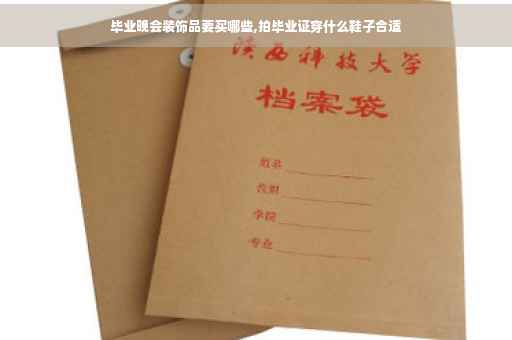 毕业晚会装饰品要买哪些,拍毕业证穿什么鞋子合适
陕西科技大学
档案袋
姓名
教职
学院
专业